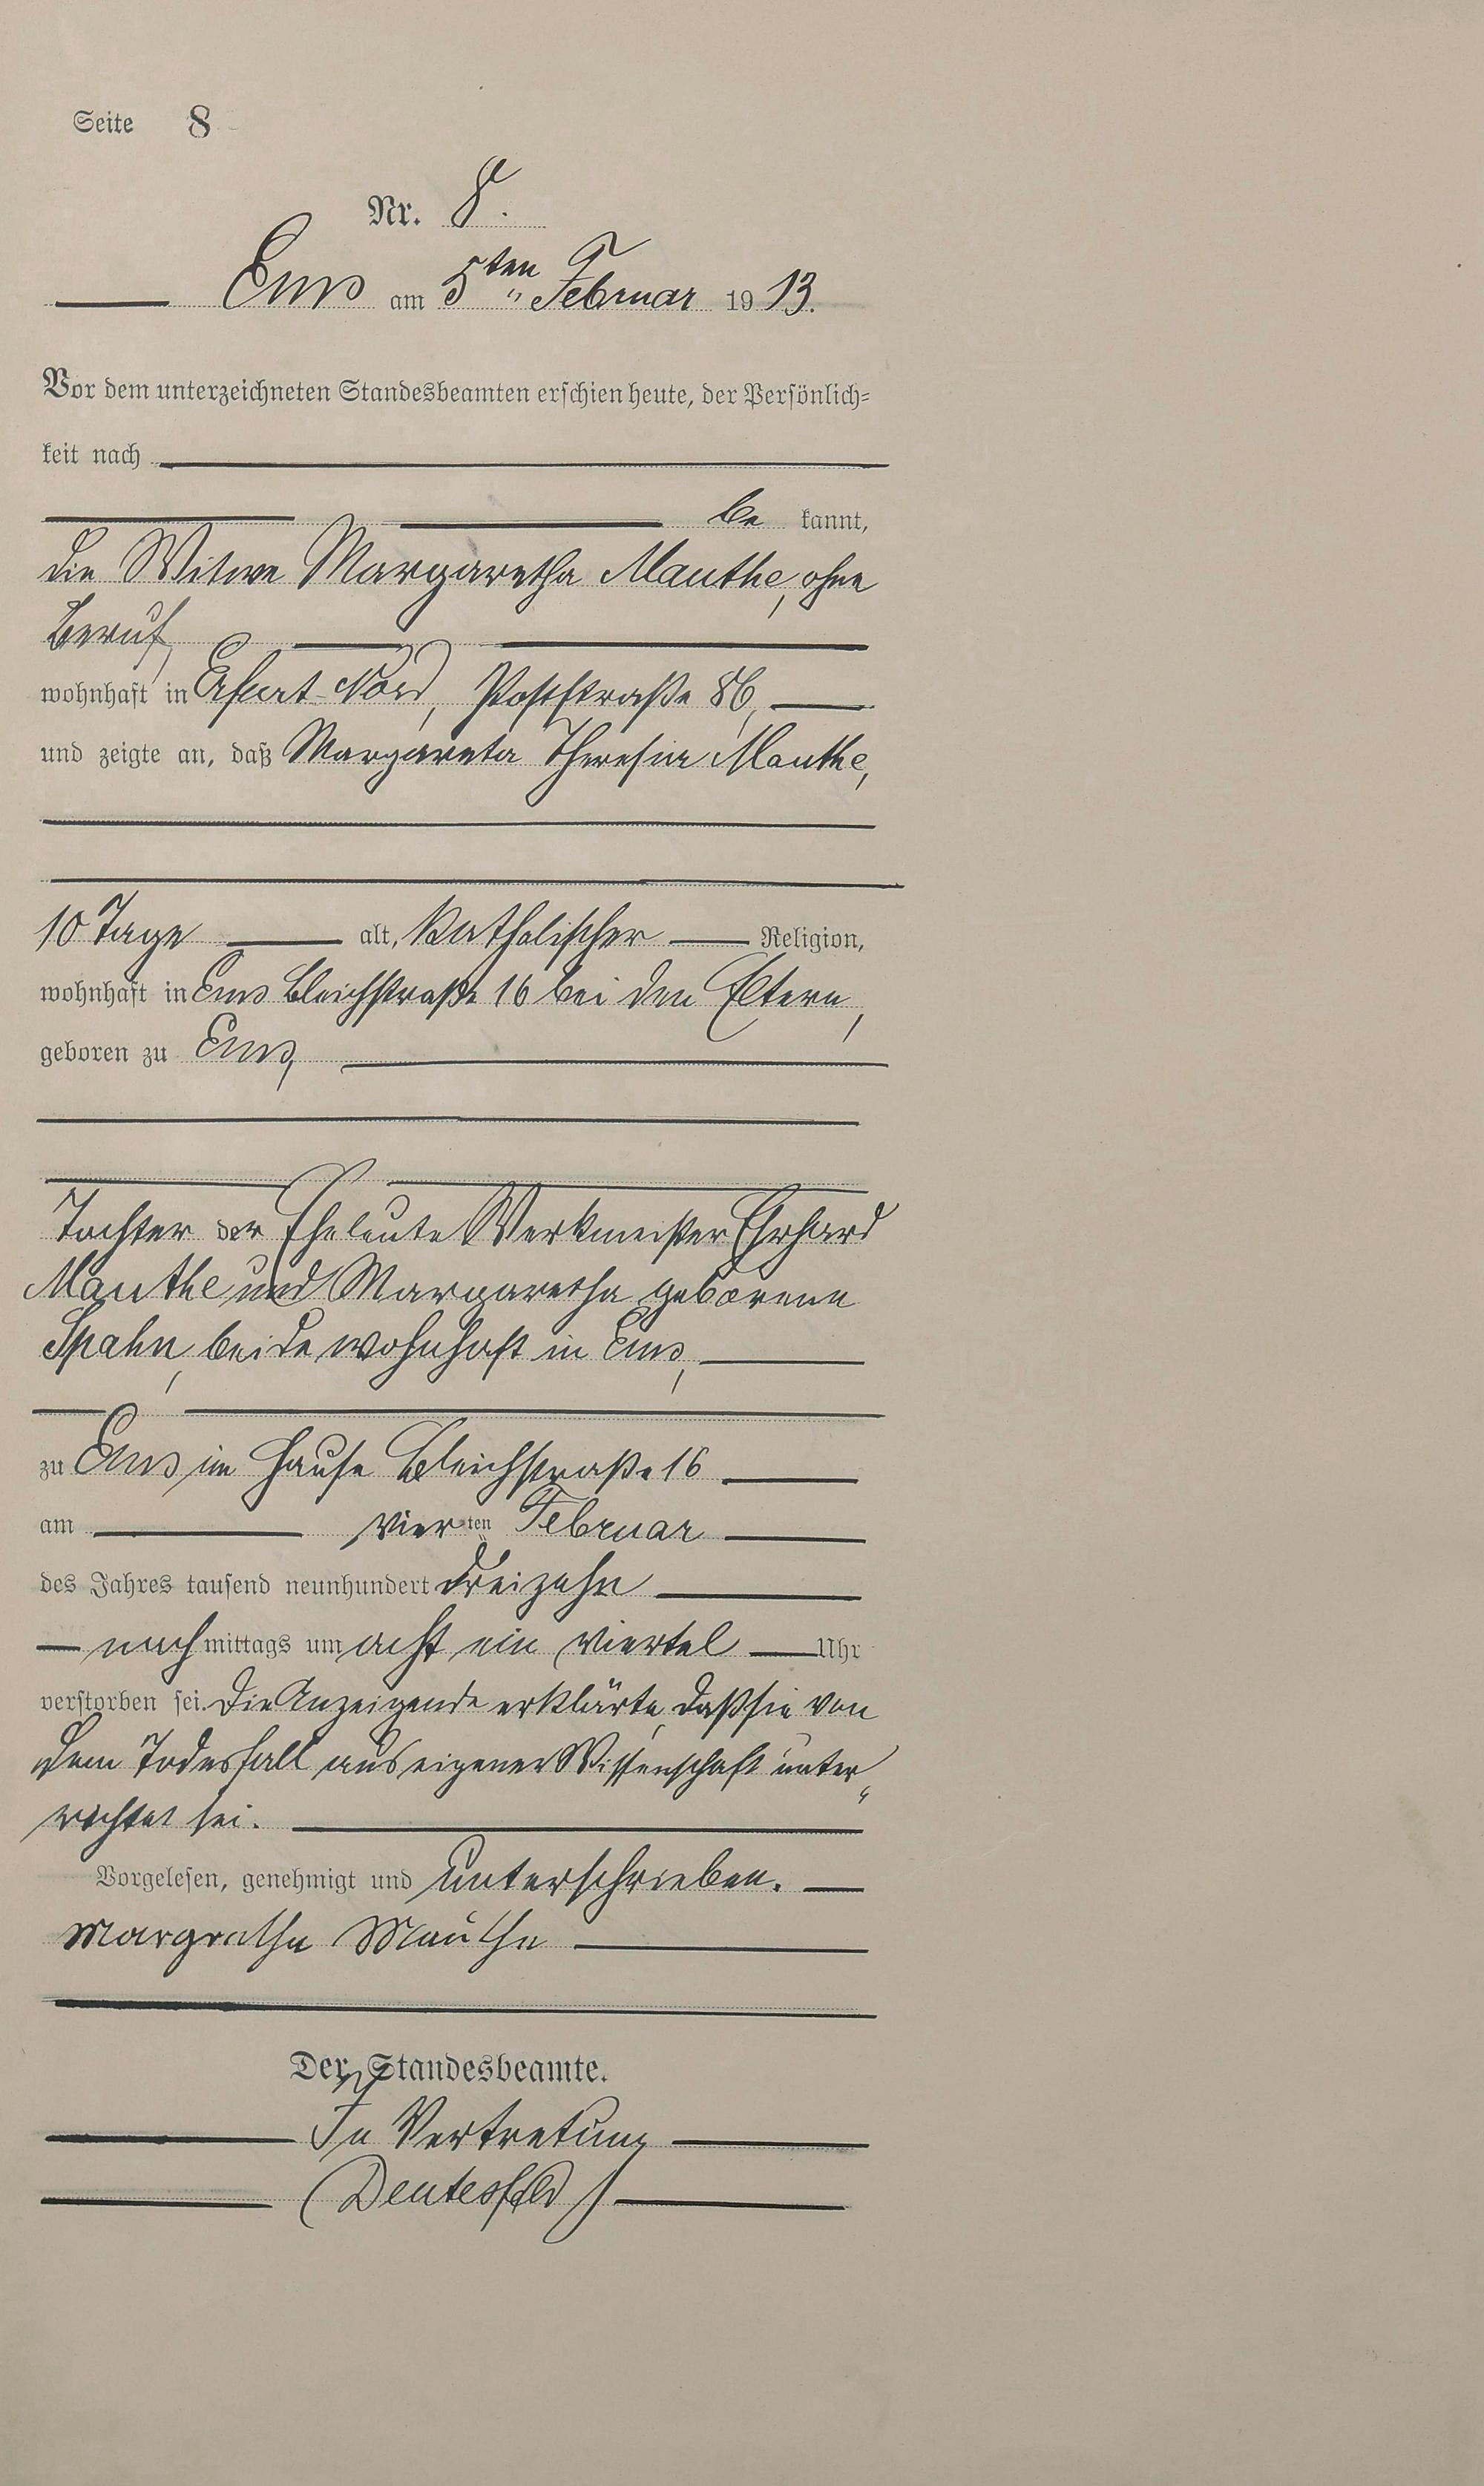 Seite 8
Nr. 8.
Ems am 5ten Februar 1913.
Vor dem unterzeichneten Standesbeamten erschien heute, der Persönlich-
keit nach
be kannt,
die Witwe Margaretha Manthe, ohne
Beruf,
wohnhaft in Nord, Poststraße 86,
und zeigte an, daß Margareta Theresia Manthe,
10 Tage alt, katholischer Religion,
wohnhaft in Ems Bleichstraße 16 bei den Eltern,
geboren zu Ems,
Tochter der Eheleute Werkmeister Ehrhard
Manthe und Margaretha geborene
Spahn, beide wohnhaft in Ems,
zu Ems im Hause Bleichstraße 16
am vier ten Februar
des Jahres tausend neunhundert dreizehn
nach mittags um acht ein viertel Uhr
verstorben sei. Die Anzeigende erklärte, daß sie von
dem Todesfall aus eigener Wissenschaft unter„
richtet sei.
Vorgelesen, genehmigt und unterschrieben.
Margratha Mauthe
Der Standesbeamte.
In Vertretung